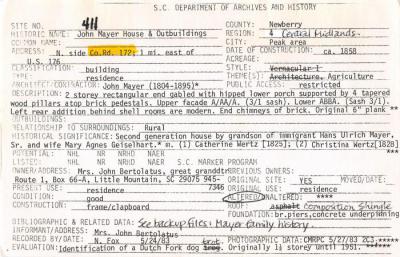 S.C. DEPARTMENT OF ARCHIVES AND HISTORY
SITE NO. 411 COUNTY: Newberry
HISTORIC NAME: John Mayer House & Outbuildings REGION: 4 Central Midlands
COMMON NAME: CITY: Peak area
ADDRESS: N. side Co.Rd. 172; 1 mi. east of DATE OF CONSTRUCTION: ca. 1858
U.S. 176 ACREAGE:
CLASSIFICATION: building STYLE: Vernacular I
residence THEME(S): Architecture, Agriculture
ARCHITECT/CONTRACTOR: John Mayer (1804-1895)* PUBLIC ACCESS: restricted
DESCRIPTION: 2 storey rectangular end gabled with hipped lower porch supported by 4 tapered
wood pillars atop brick pedestals. Upper facade A/AA/A. (3/1 sash). Lower ABBA. (Sash 3/1).
Left rear addition behind shell rooms are modern. End chimneys of brick. Original 6" plank **
OUTBUILDINGS:
RELATIONSHIP TO SURROUNDINGS: Rural
HISTORICAL SIGNIFICANCE: Second generation house by grandson of immigrant Hans Ulrich Mayer,
Sr. and wife Mary Agnes Geiselhart.* m. (1) Catherine Wertz [1825]; (2) Christina Wertz[1828]
POTENTIAL: NH NR NRHD NAER ***
LISTED: NH NR NRHD NAER S.C. MARKER PROGRAM
OWNER/ADDRESS: Mrs. John Bertolatus, great granddtr PREVIOUS OWNERS:
Route 1, Box 66-A, Little Mountain, SC 29075 945- ORIGINAL SITE: YES MOVED/DATE:
PRESENT USE: residence 7346 ORIGINAL USE: residence
CONDITION: good ALTERED/UNALTERED: ****
CONSTRUCTION: frame/clapboard ROOF: asphalt composition Shingle
FOUNDATION: br.piers, concrete underpinning
BIBLIOGRAPHIC & RELATED DATA: See backup files: Mayer family history.
INFORMANT/ADDRESS: Mrs. John Bertolatus
RECORDED BY/DATE: N. Fox 5/24/83 PHOTOGRAPHIC DATA: CMRPC 5/27/83 2C3 *****
EVALUATION: Identification of a Dutch Fork dog trot. Originally 1½ storey until 1951. ****